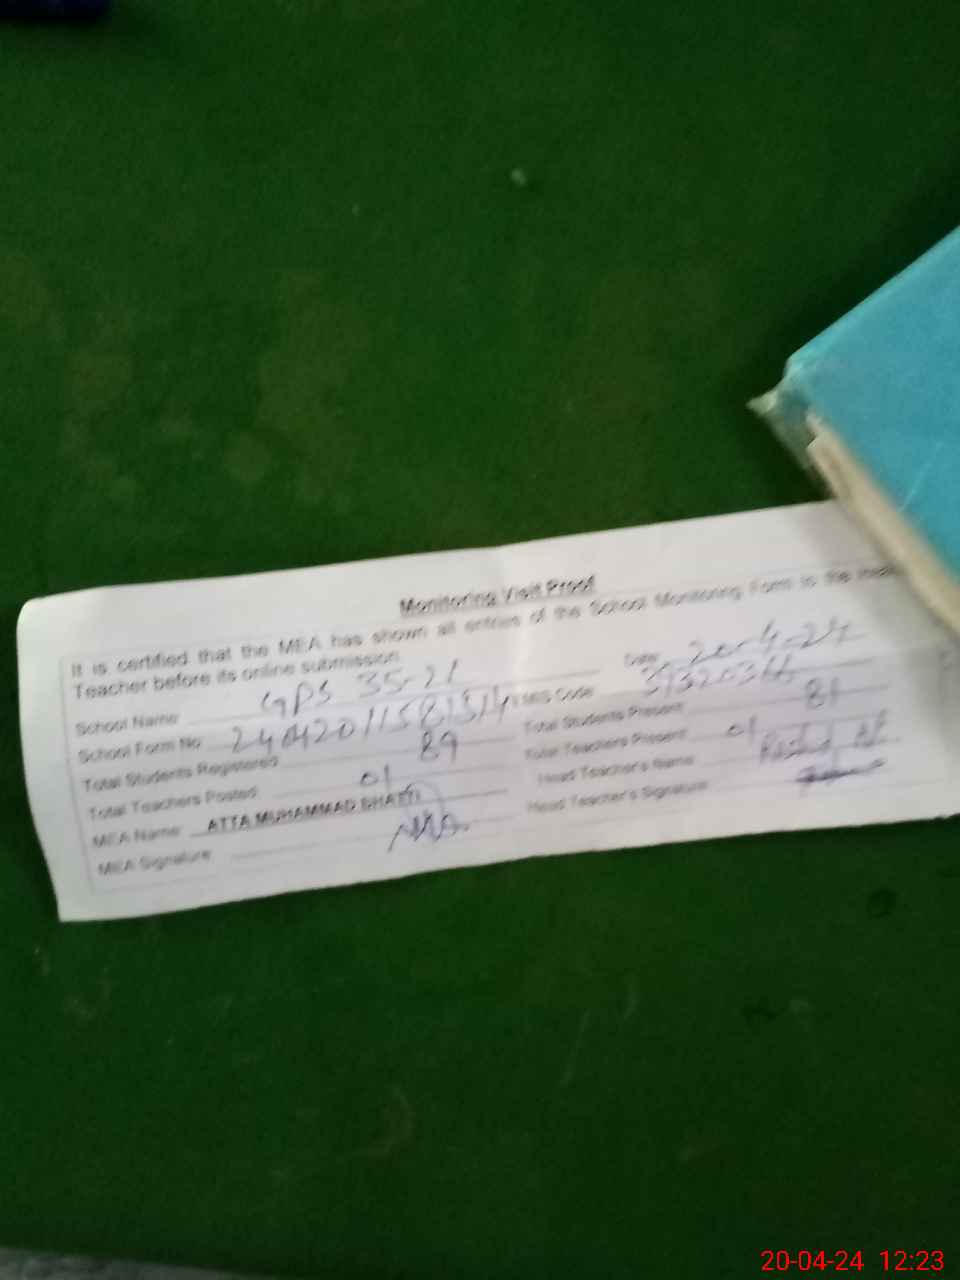 Monitoring Visit Proof
It is certified that the MEA has shown all entries of the School Monitoring Form to the
Teacher before its online submission.
Date: 20-4-24
School Name: GPS 35-21
School Form No: Code:
Total Students Registered: 89 Total Students Present: 81
Total Teachers Posted: 01 Total Teachers Present: 01
MEA Name: ATTA MUHAMMAD BHATTI Head Teacher's Name:
MEA Signature: Head Teacher's Signature:
20-04-24 12:23